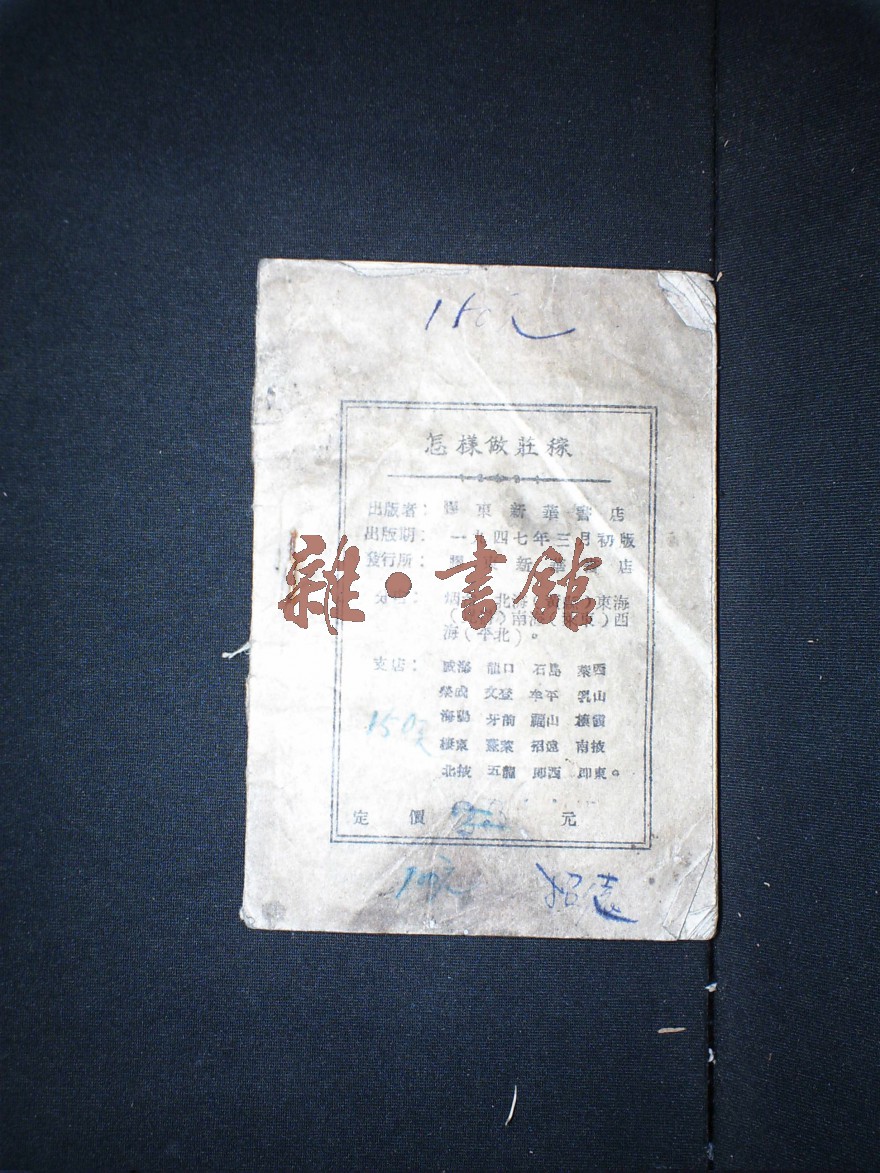 怎樣做莊稼
出版者：膠東新華書店
出版期：一九四七年三月初版
發行所：膠東新華書店
雜·書館
北海 東海
南海 西
海（平北）。
支店：威海 龍口 石島 萊西
榮成 文登 牟平 乳山
海陽 牙前 棲霞
150元
棲東 蓬萊 招遠 南掖
北掖 五龍 即西 即東。
定價 元
招遠